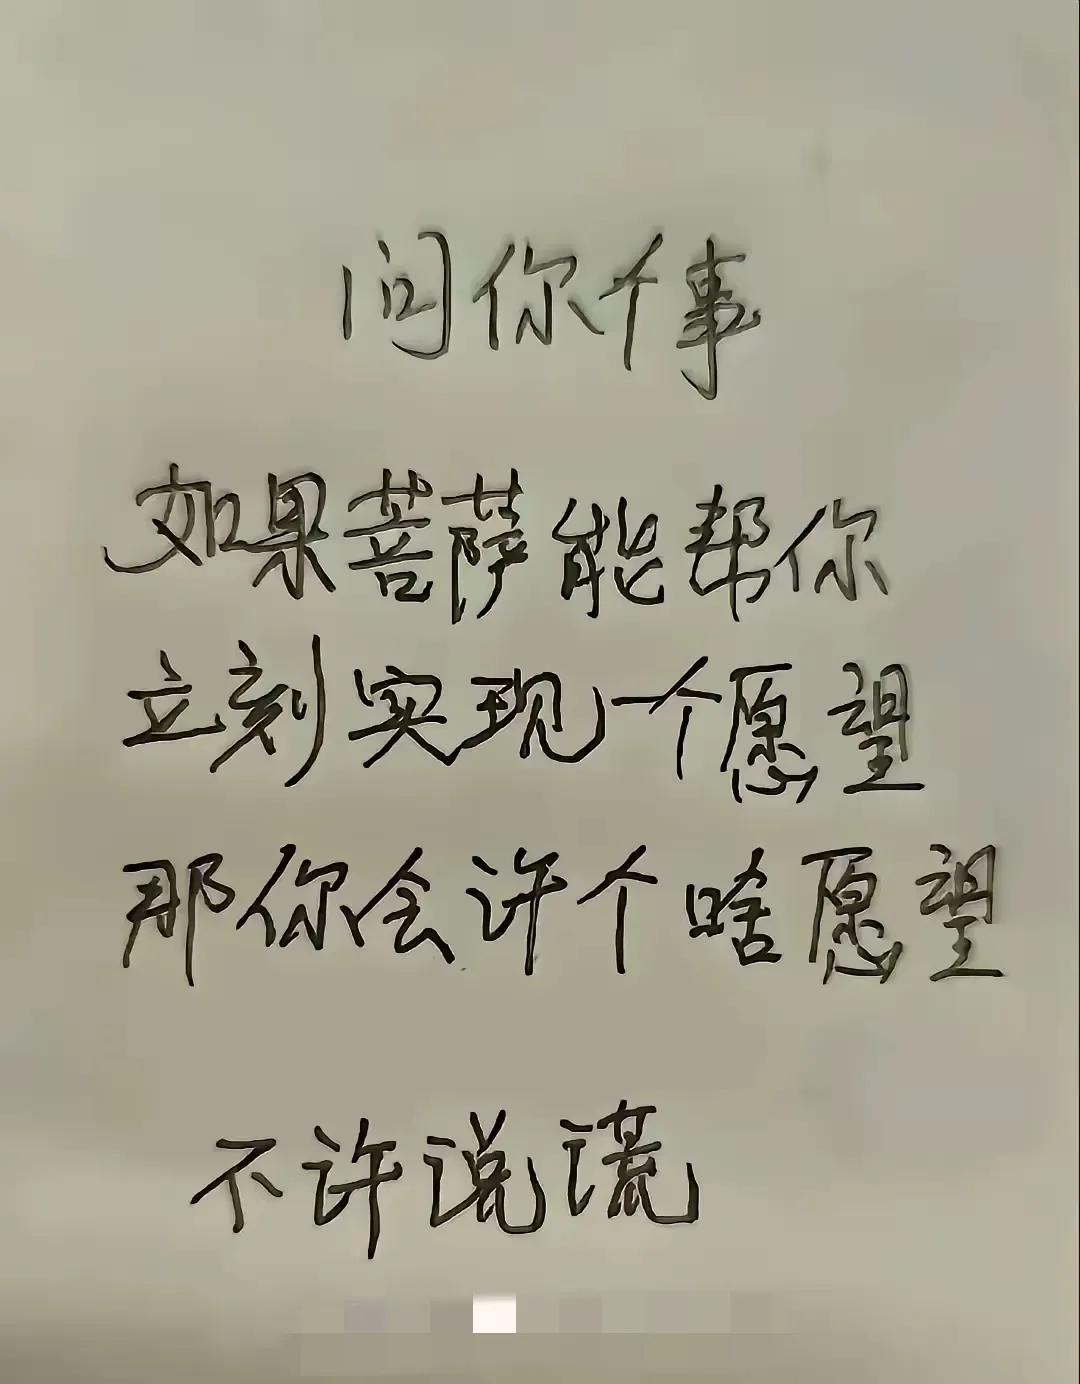 问你个事
如果菩萨能帮你
立刻实现一个愿望
那你会许个啥愿望
不许说谎